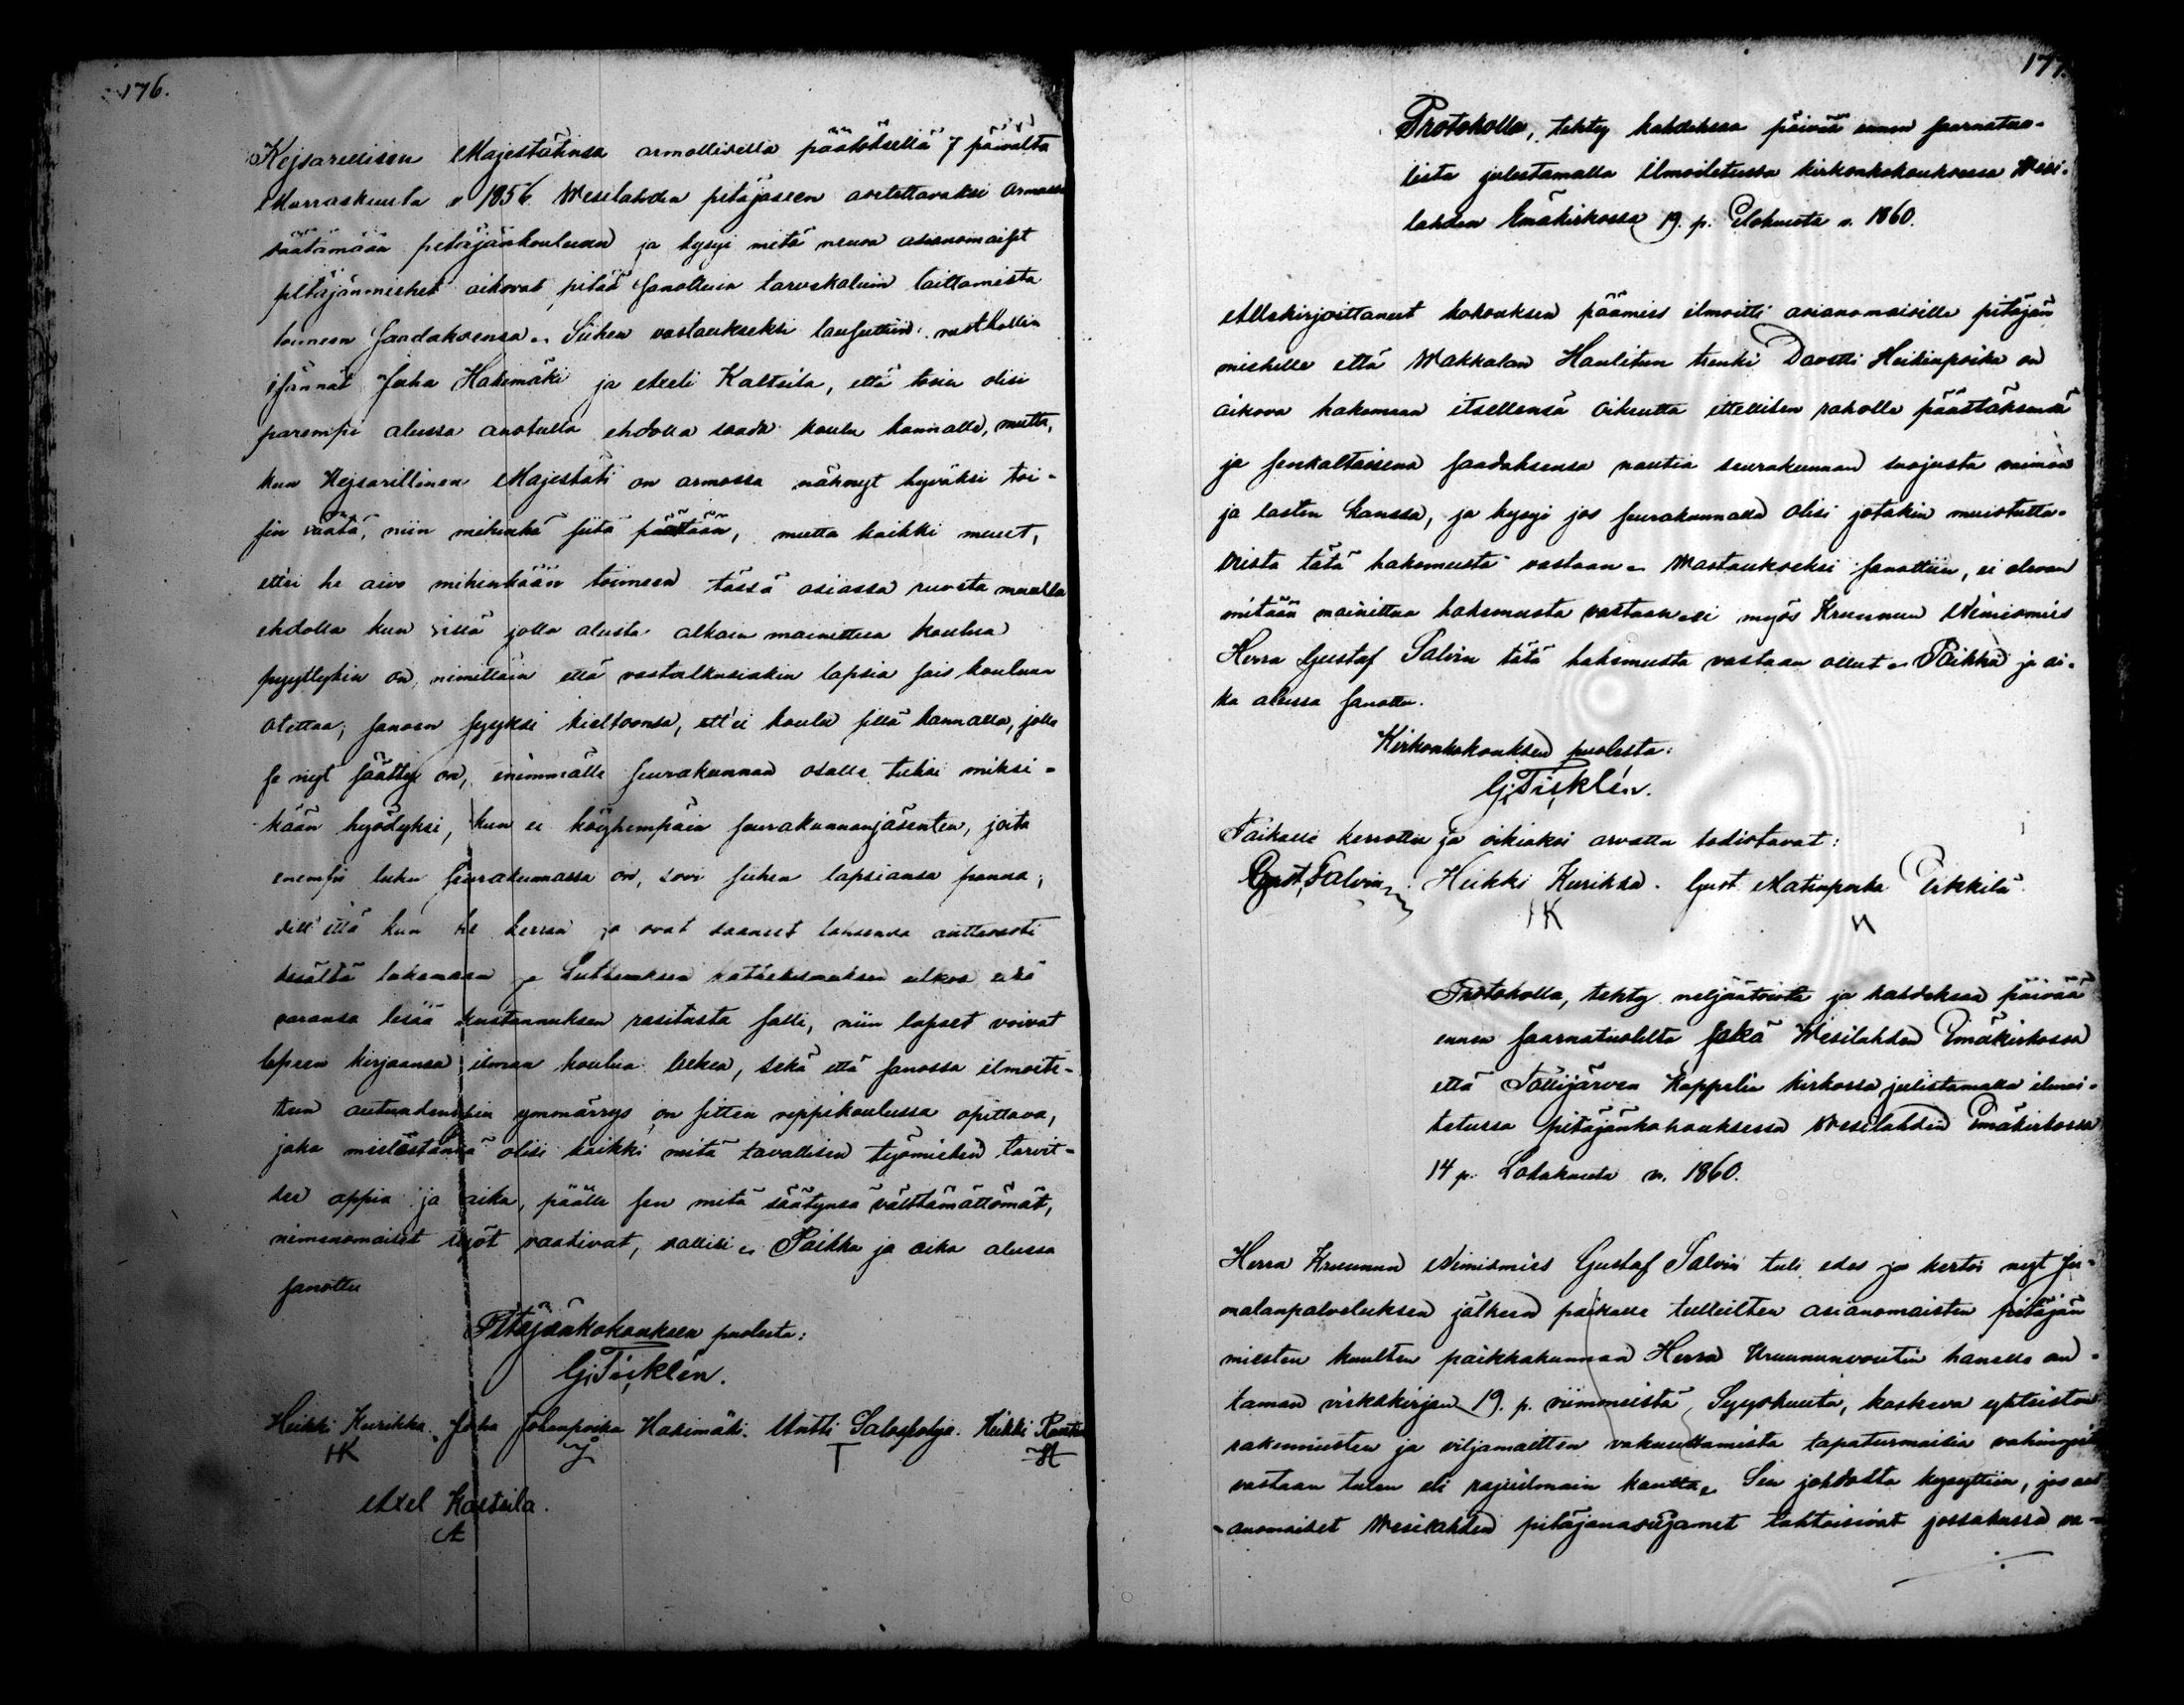 176.
Kejsarillisen Majestätinsä armollisella päätöksellä 7 päivältä
Marraskuuta v 1856 Wesilahden pitäjäseen asetettavaksi armossa
säätämään pitäjänkouluun ja kysyi mitä neuvoa asianomaiset
pitäjänmiehet aikovat pitää sanottuin tarvekaluin laittamista
toimeen saadaksensa. Siihen vastaukseksi lausuttiin: rusthollin
isännät Juha Hakemäki ja Akseli Kaltsila, että tosin olisi
parempi alussa anotulla ehdolla saada koulu kannalle, mutta,
kun Kejsarillinen Majestäti on armossa nähnyt hyväksi toi-
sin säätä, niin mihinkä siitä päästään, mutta kaikki muut,
ett'ei he aivo mihinkään toimeen tässä asiassa ruveta muulla
ehdolla kun sillä jolla alusta alkain mainittua koulua
pyydetykin on, nimittäin että vastaalkusiakin lapsia sais kouluun
otettaa; sanoen syyksi kieltoonsa, ett'ei koulu sillä kannalla, jolla
se nyt säätty on, enimmälle seurakunnan osalle tulisi miksi-
kään hyödyksi, kun ei köyhempäin seurakunnanjäsenten, joita
enempi luku seurakunnassa on, sovi siihen lapsiansa panna,
sill' että kun he kerran jo ovat saaneet lapsensa auttavasti
sisältä lukemaan ja Lutheruksen katkismuksen ulkoa eikä
varansa lisää kustannuksen rasitusta salli, niin lapset voivat
lopun kirjaansa ilman koulua lukea, sekä että sanossa ilmoite-
tun autuudenopin ymmärrys on sitten rippikoulussa opittava,
joka mielestänsä olisi kaikki mitä tavallisen työmiehen tarvit-
see oppia ja aika, päälle sen mitä säätynsä välttämättömät,
nimenomaiset työt vaativat, sallisi. Paikka ja aika alussa
sanottu
Pitäjänkokouksen puolesta:
G. Ticklén.
Heikki Kurikka. Juha Johanpoika Hakemäki. Antti Salospohja. Heikki Rautia
HK J T H
Axel Kaltsila.
A
177.
Protokolla, tehty kahdeksaa päivää ennen saarnatuo-
lista julistamalla ilmoitetussa kirkonkokouksessa Wesi-
lahden Emäkirkossa 19. p. Elokuuta v. 1860.
Allekirjoittanut kokouksen päämies ilmoitti asianomaisille pitäjän
miehille että Wakkalan Haulitun trenki Davetti Heikinpoika on
aikova hakemaan itsellensä oikeutta itellisten raholle päästäksensä
ja senkaltaisena saadaksensa nautia seurakunnan suojusta vaimon
ja lasten kanssa, ja kysyi jos seurakunnalla olisi jotakin muistutta-
vista tätä hakemusta vastaan. Wastaukseksi sanottiin, ei olevan
mitään mainittua hakemusta vastaan, ei myös Kruunun Nimismies
Herra Gustaf Salvin tätä hakemusta vastaan ollut. Paikka ja ai-
ka alussa sanottu.
Kirkonkokouksen puolesta:
G. Ticklén.
Paikalla kerrottu ja oikiaksi arvattu todistavat:
Gust. Salvin. Heikki Kurikka. Gust. Matinpoika Pirkkilä
HK
Protokolla, tehty neljäätoista ja kahdeksaa päivää
ennen saarnatuolilta sekä Wesilahden Emäkirkossa
että Tottijärven Kappelin kirkossa julistamalla ilmoi-
tetussa pitäjänkokouksessa Wesilahden Emäkirkossa
14 p. Lokakuuta v. 1860.
Herra Kruunun Nimismies Gustaf Salvin tuli edes ja kertoi nyt Ju-
malanpalveluksen jälkeen paikalle tulleitten asianomaisten pitäjän
miesten kuulten paikkakunnan Herra Kruununvoutin hänelle an-
taman virkakirjan 19. p. viimmeistä Syyskuuta, koskeva yhteistä
rakennusten ja viljamaitten vakuuttamista tapaturmaisia vahingoita
vastaan tulen eli rajuilmain kautta. Sen johdosta kysyttiin, jos asi-
anomaiset Wesilahden pitäjänasujamet tahtoisivat jossakussa va-